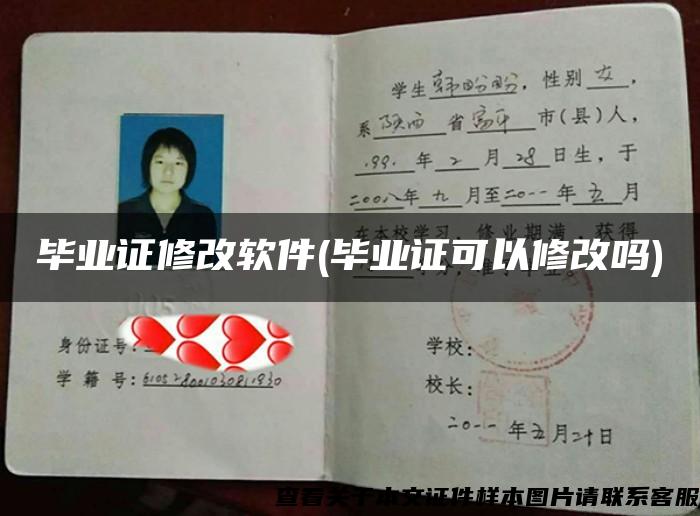 学生韩盼盼，性别女，
系陕西省富平市(县)人，
1991年2月28日生，于
二00八年九月至二0一一年五月
在本校学习，修业期满，获得
毕业证修改软件(毕业证可以修改吗)
身份证号：
学籍号：
学校：
校长：
二0一一年五月二十日
查看关于本文证件样本图片请联系客服